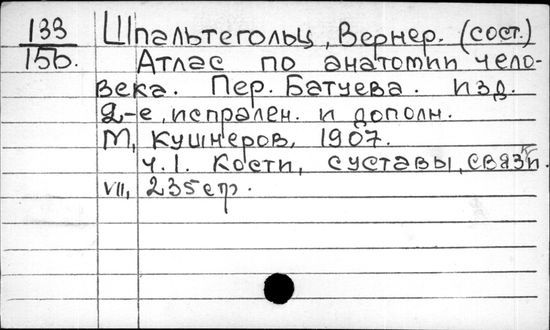 133 Шпальтегольц, Вернер. (сост.)
15b. Атлас по анатомии чело-
века. Пер. Батуева. изд.
2-е, испрален. и дополн.
М, Кушнеров, 1907.
ч.1. Кости, суставы, связки.
VII, 235стр.